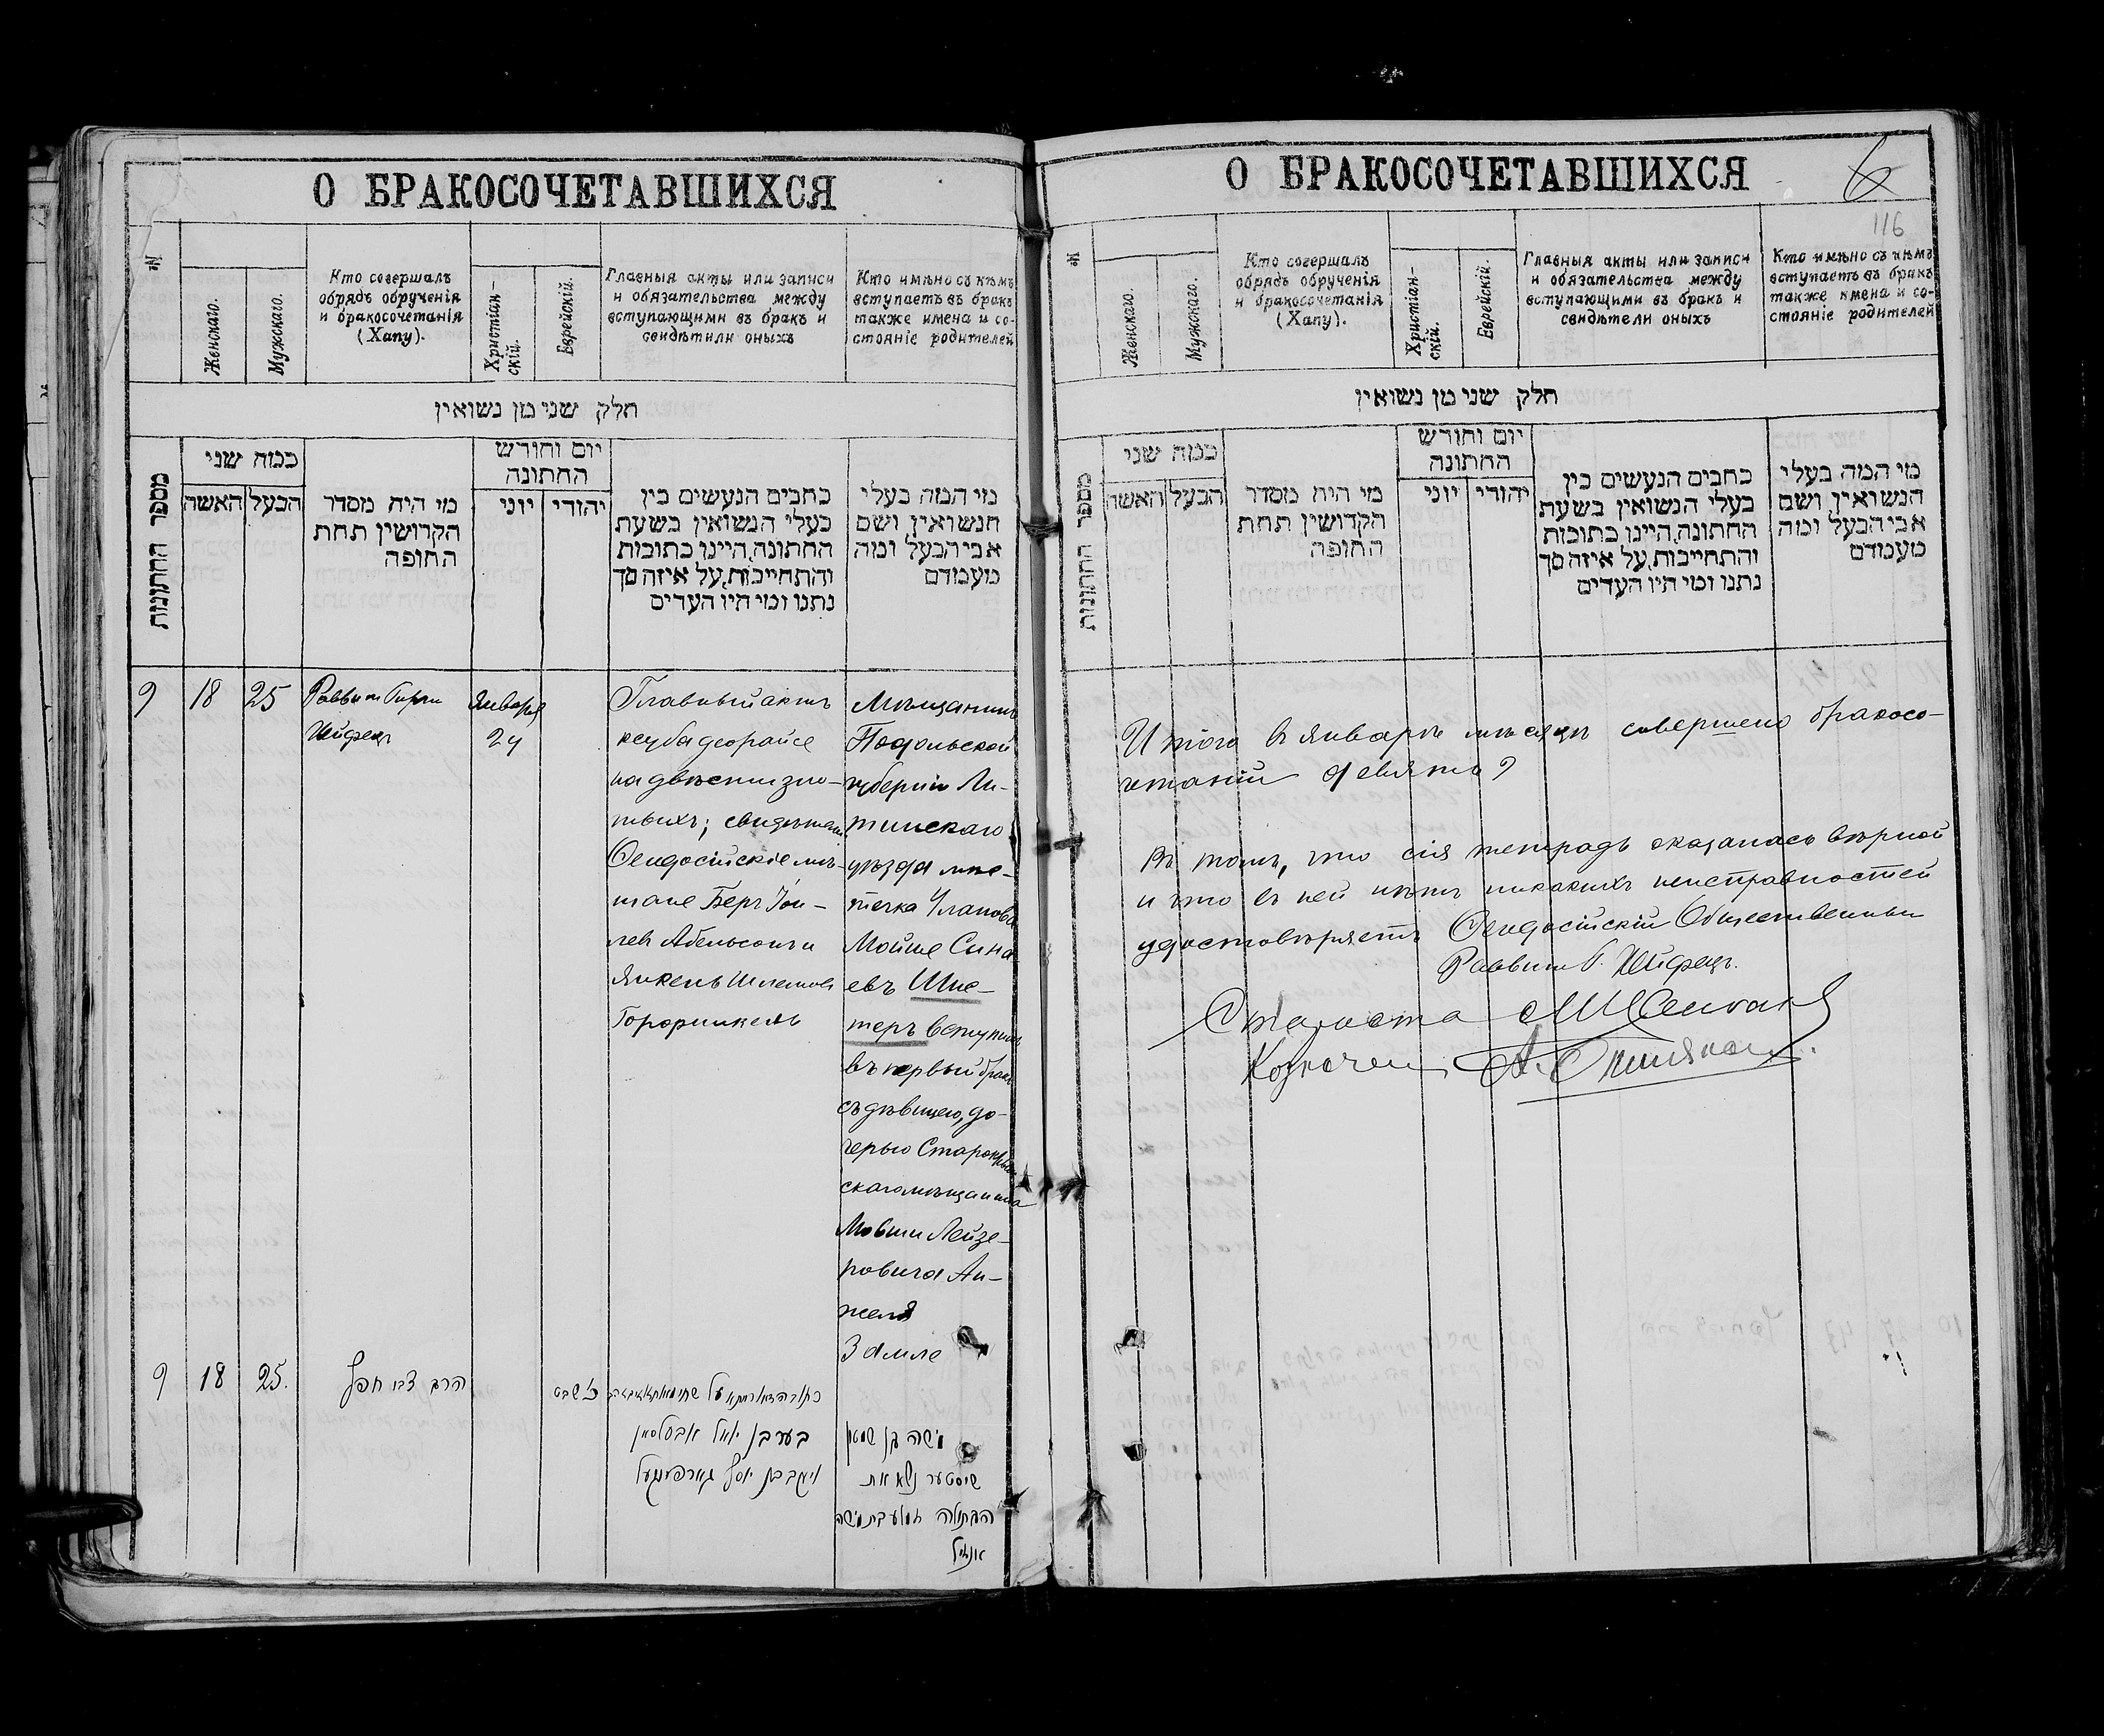 О БРАКОСОЧЕТАВШИХСЯ
№
Женскаго.
Мужскаго.
Кто совершалъ
обрядъ обрученія
и бракосочетанія
(Хапу).
Христіан-
скій.
Еврейскій.
Главныя акты или записи
и обязательства между
вступающими въ бракъ и
свидѣтили оныхъ
Кто имѣно съ кѣмъ
вступаетъ въ бракъ
также имена и со-
стояніе родителей
חלק שני מן נשואין
מספר החתונות
כמה שני
האשה
הבעל
מי היה מסדר
הקדושין תחת
החופה
יום וחודש
החתונה
יוני
יהודי
כתבים הנעשים בין
בעלי הנשואין בשעת
החתונה, היינו כתובות
והתחייבות, על איזה סך
נתנו ומי היו העדים
מי המה בעלי
הנשואין ושם
אבי הבעל ומה
מעמדם
9 18 25
Раввин Гирш
Хейфецъ
Января
24
Главный актъ
ксуба деорайсе
на двѣсти зло-
тыхъ; свидѣтели
Ѳеодосійскіе мѣ-
щане Беръ Іои-
лев Абельсонъ и
Янкель
Мѣщанинъ
Подольской
губерніи Ли-
тинскаго
уѣзда мѣс-
течка Уланова
Мойше Сина-
евъ Шпе-
теръ вступилъ
въ первый бракъ
съ дѣвицею, до-
черью Старокрым-
скаго мѣщанина
Мовши Лейзе-
ровича Ан-
желя
Замле
9 18 25.
הרב צבי חפץ
כ' שבט
בער בן יואל אבעלסאן
משה בן
נשא את
הבתולה זאמלע בת משה
אנזיל
О БРАКОСОЧЕТАВШИХСЯ
6
116
№
Женскаго.
Мужскаго.
Кто совершалъ
обрядъ обрученія
и бракосочетанія
(Хапу).
Христіан-
скій.
Еврейскій.
Главныя акты или записи
и обязательства между
вступающими въ бракъ и
свидѣтели оныхъ
Кто имѣно съ кѣмъ
вступаетъ въ бракъ
также имена и со-
стояніе родителей
חלק שני מן נשואין
מספר החתונות
כמה שני
האשה
הבעל
מי היה מסדר
הקדושין תחת
החופה
יום וחודש
החתונה
יוני
יהודי
כתבים הנעשים בין
בעלי הנשואין בשעת
החתונה, היינו כתובות
והתחייבות, על איזה סך
נתנו ומי היו העדים
מי המה בעלי
הנשואין ושם
אבי הבעל ומה
מעמדם
Итого въ январѣ мѣсяцѣ совершено бракосо-
четаній девять 9
Въ томъ, что сія тетрадь оказалась вѣрной
и что въ ней нѣтъ никакихъ неисправностей
удостовѣряетъ Ѳеодосійскій Общественный
Раввинъ Г. Хейфецъ.
Староста
Козначей